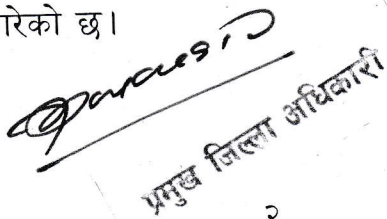 रेको छ।
प्रमुख जिल्ला अधिकारी